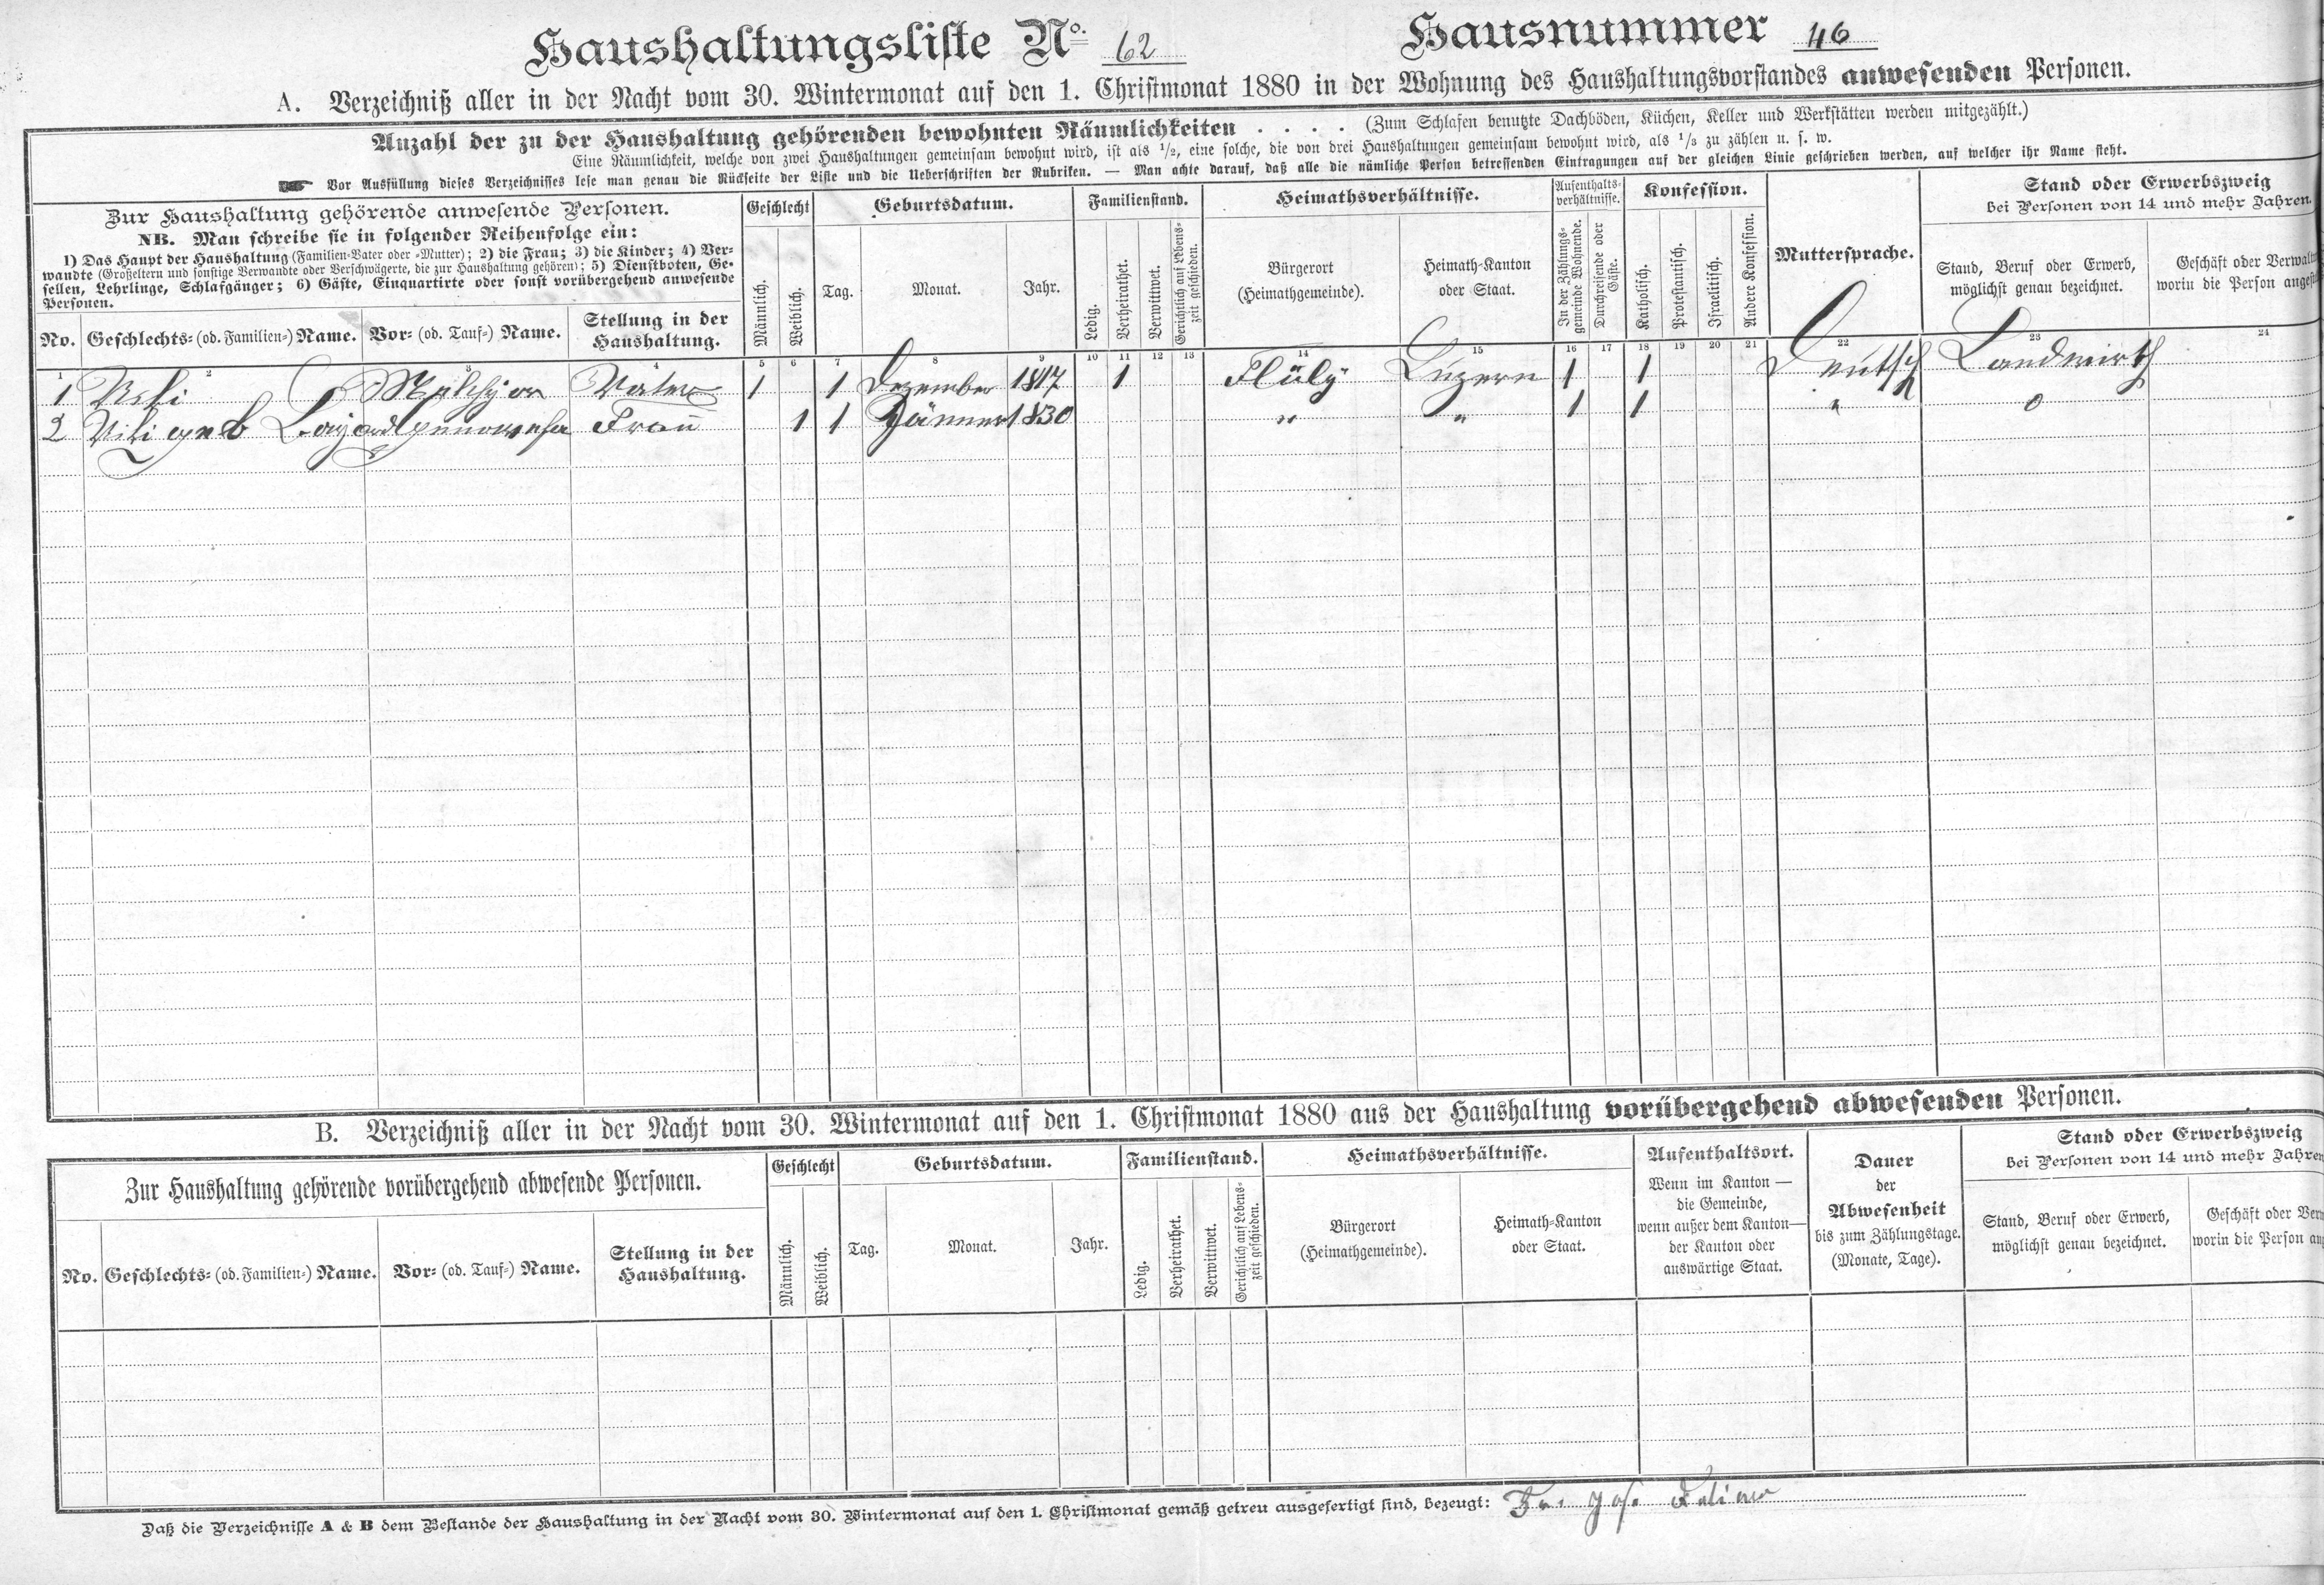 Haushaltungsliste No. 62 Hausnummer 46
A. Verzeichniß aller in der Nacht vom 30. Wintermonat auf den 1. Christmonat 1880 in der Wohnung des Haushaltungsvorstandes anwesenden Personen.
Anzahl der zu der Haushaltung gehörenden bewohnten Räumlichkeiten . . . . (Zum Schlafen benutzte Dachböden, Küchen, Keller und Werkstätten werden mitgezählt.)
Eine Räumlichkeit, welche von zwei Haushaltungen gemeinsam bewohnt wird, ist als 1/2, eine solche, die von drei Haushaltungen gemeinsam bewohnt wird, als 1/3 zu zählen u. s. w.
Vor Ausfüllung dieses Verzeichnisses lese man genau die Rückseite der Liste und die Ueberschriften der Rubriken. — Man achte darauf, daß alle die nämliche Person betreffenden Eintragungen auf der gleichen Linie geschrieben werden, auf welcher ihr Name steht.
Zur Haushaltung gehörende anwesende Personen.
NB. Man schreibe sie in folgender Reihenfolge ein:
1) Das Haupt der Haushaltung (Familien-Vater oder -Mutter); 2) die Frau; 3) die Kinder; 4) Ver-
wandte (Großeltern und sonstige Verwandte oder Verschwägerte, die zur Haushaltung gehören); 5) Dienstboten, Ge-
sellen, Lehrlinge, Schlafgänger; 6) Gäste, Einquartirte oder sonst vorübergehend anwesende
Personen.
No. Geschlechts- (od. Familien-) Name. Vor- (od. Tauf-) Name. Stellung in der
Haushaltung.
Geschlecht
Männlich.
Weiblich.
Geburtsdatum.
Tag. Monat. Jahr.
Familienstand.
Ledig.
Verheirathet.
Verwittwet.
Gerichtlich auf Lebens-
zeit geschieden.
Heimathsverhältnisse.
Bürgerort
(Heimathgemeinde).
Heimath-Kanton
oder Staat.
Aufenthalts-
verhältnisse.
In der Zählungs-
gemeinde Wohnende.
Durchreisende oder
Gäste.
Konfession.
Katholisch.
Protestantisch.
Israelitisch.
Andere Konfession.
Muttersprache.
Stand oder Erwerbszweig
bei Personen von 14 und mehr Jahren.
Stand, Beruf oder Erwerb,
möglichst genau bezeichnet.
Geschäft oder Verwalt
worin die Person angest
1 2 3 4 5 6 7 8 9 10 11 12 13 14 15 16 17 18 19 20 21 22 23 24
1 Melchior Vater 1 1 Dezember 1817 1 Flüly Luzern 1 1 Deutsch Landwirth
2 geb Frau 1 1 Jänner 1830 " " 1 1 " 0
B. Verzeichniß aller in der Nacht vom 30. Wintermonat auf den 1. Christmonat 1880 aus der Haushaltung vorübergehend abwesenden Personen.
Zur Haushaltung gehörende vorübergehend abwesende Personen.
No. Geschlechts- (od. Familien-) Name. Vor- (od. Tauf-) Name. Stellung in der
Haushaltung.
Geschlecht
Männlich.
Weiblich.
Geburtsdatum.
Tag. Monat. Jahr.
Familienstand.
Ledig.
Verheirathet.
Verwittwet.
Gerichtlich auf Lebens-
zeit geschieden.
Heimathsverhältnisse.
Bürgerort
(Heimathgemeinde).
Heimath-Kanton
oder Staat.
Aufenthaltsort.
Wenn im Kanton —
die Gemeinde,
wenn außer dem Kanton—
der Kanton oder
auswärtige Staat.
Dauer
der
Abwesenheit
bis zum Zählungstage.
(Monate, Tage).
Stand oder Erwerbszweig
bei Personen von 14 und mehr Jahren
Stand, Beruf oder Erwerb,
möglichst genau bezeichnet.
Geschäft oder Verw
worin die Person an
Daß die Verzeichnisse A & B dem Bestande der Haushaltung in der Nacht vom 30. Wintermonat auf den 1. Christmonat gemäß getreu ausgefertigt sind, bezeugt: